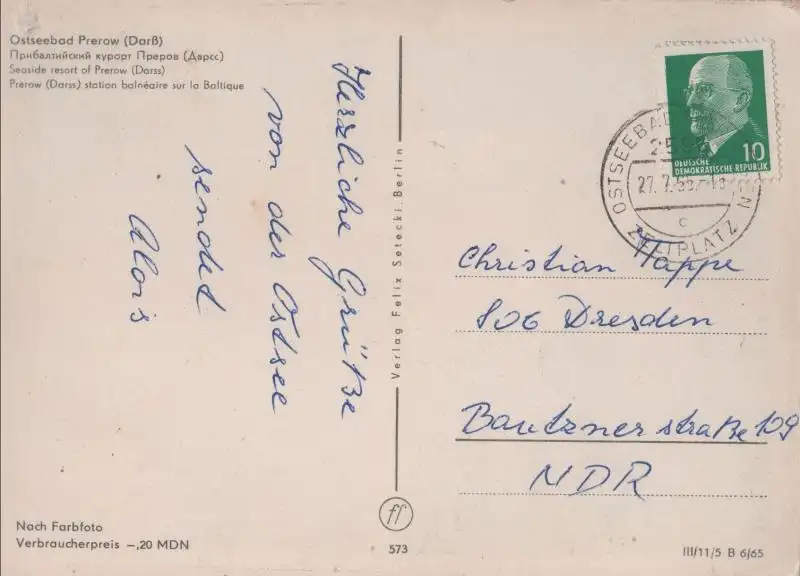 Ostseebad Prerow (Darß)
Прибалтийский курорт Преров (Дарсс)
Seaside resort of Prerow (Darss)
Prerow (Darss) station balnéaire sur la Baltique
Herzliche Grüße
von der Ostsee
sendet
Alois
Verlag Felix Setecki, Berlin
10
DEUTSCHE
DEMOKRATISCHE REPUBLIK
OSTSEEBAD
27. 7.
c
ZELTPLATZ N
Christian Happe
806 Dresden
Bautznerstraße 109
NDR
ff
573
Nach Farbfoto
Verbraucherpreis –,20 MDN
III/11/5 B 6/65